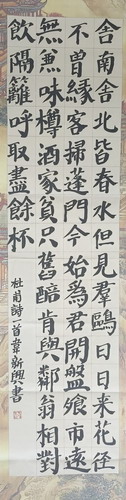 舍南舍北皆春水但見羣鷗日日来花径
不曾緣客掃蓬門今始為君開盤飧市遠
無兼味樽酒家貧只舊醅肯與鄰翁相對
飲隔籬呼取盡餘杯
杜甫詩一首韋新興書